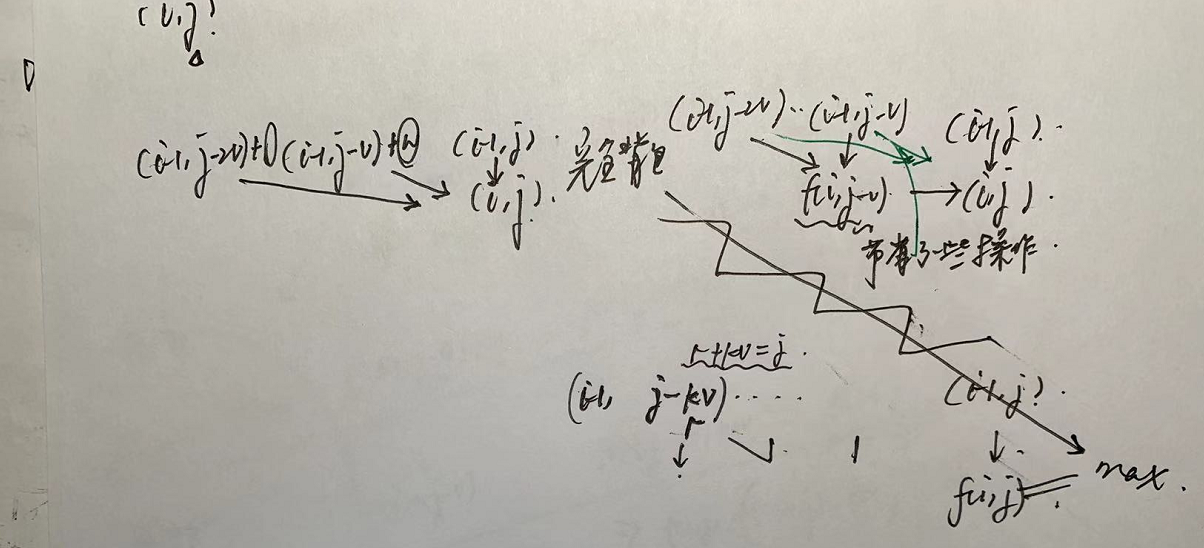 (i,j)
(i-1,j-2v)+ (i-1,j-v)+w (i-1,j).
(i,j).
完全背包
(i-1,j-2v)··(i-1,j-v) (i-1,j).
f(i,j-v). (i,j).
节省了一些操作.
r+kv=j.
(i-1, j-kv)····· (i-1,j).
r
f(i,j)= max.